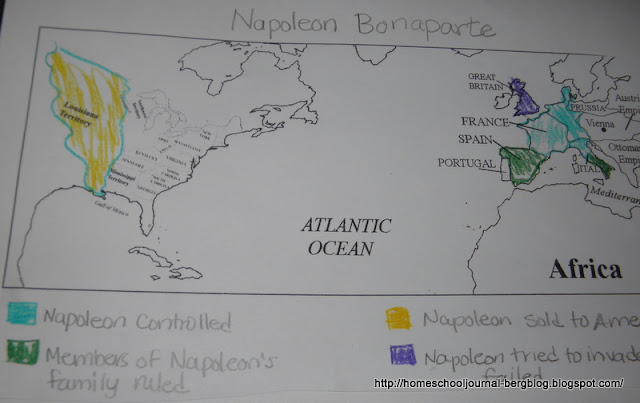 Napoleon Bonaparte
Louisiana
Territory
Mississippi
Territory
KENTUCKY
VIRGINIA
GEORGIA
Gulf of Mexico
ATLANTIC
OCEAN
GREAT
BRITAIN
FRANCE
SPAIN
PORTUGAL
PRUSSIA
Vienna
Austri
Empi
Ottoma
Empir
ITAL
Mediterran
Africa
Napoleon Controlled
Members of Napoleon's
family ruled
Napoleon sold to Ame
Napoleon tried to invade
failed
http://homeschooljournal-bergblog.blogspot.com/